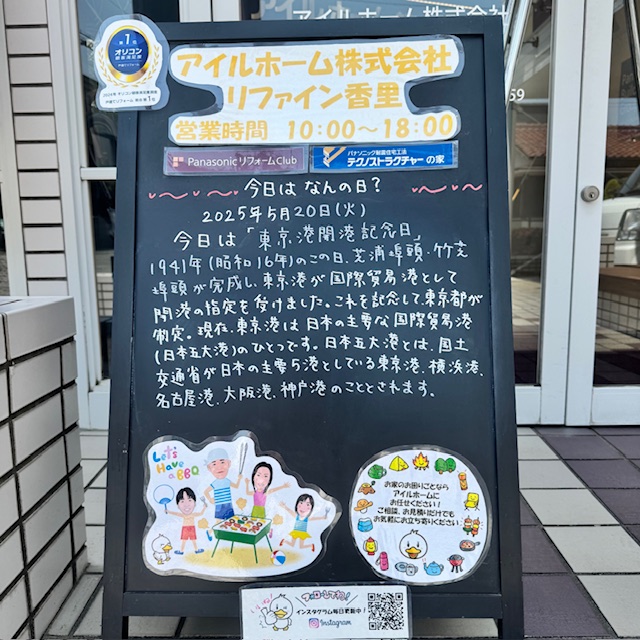 アイルホーム株式会社
59
第1位
オリコン
顧客満足度
アイルホーム株式会社
リファイン香里
営業時間 10:00～18:00
PanasonicリフォームClub
パナソニック耐震住宅工法
テクノストラクチャーの家
今日は なんの日？
2025年5月20日(火)
今日は「東京港開港記念日」
1941年(昭和16年)のこの日、芝浦埠頭・竹芝
埠頭が完成し、東京港が国際貿易港として
開港の指定を受けました。これを記念して、東京都が
制定。現在、東京港は日本の主要な国際貿易港
(日本五大港)のひとつです。日本五大港とは、国土
交通省が日本の主要5港としている東京港、横浜港、
名古屋港、大阪港、神戸港のこととされます。
Let's
Have
a BBQ
お家のお困りごとなら
アイルホームに
お任せください！
ご相談、お見積りだけでも
お気軽にお立ち寄りください
フォローしてね！
インスタグラム毎日更新中！
Instagram